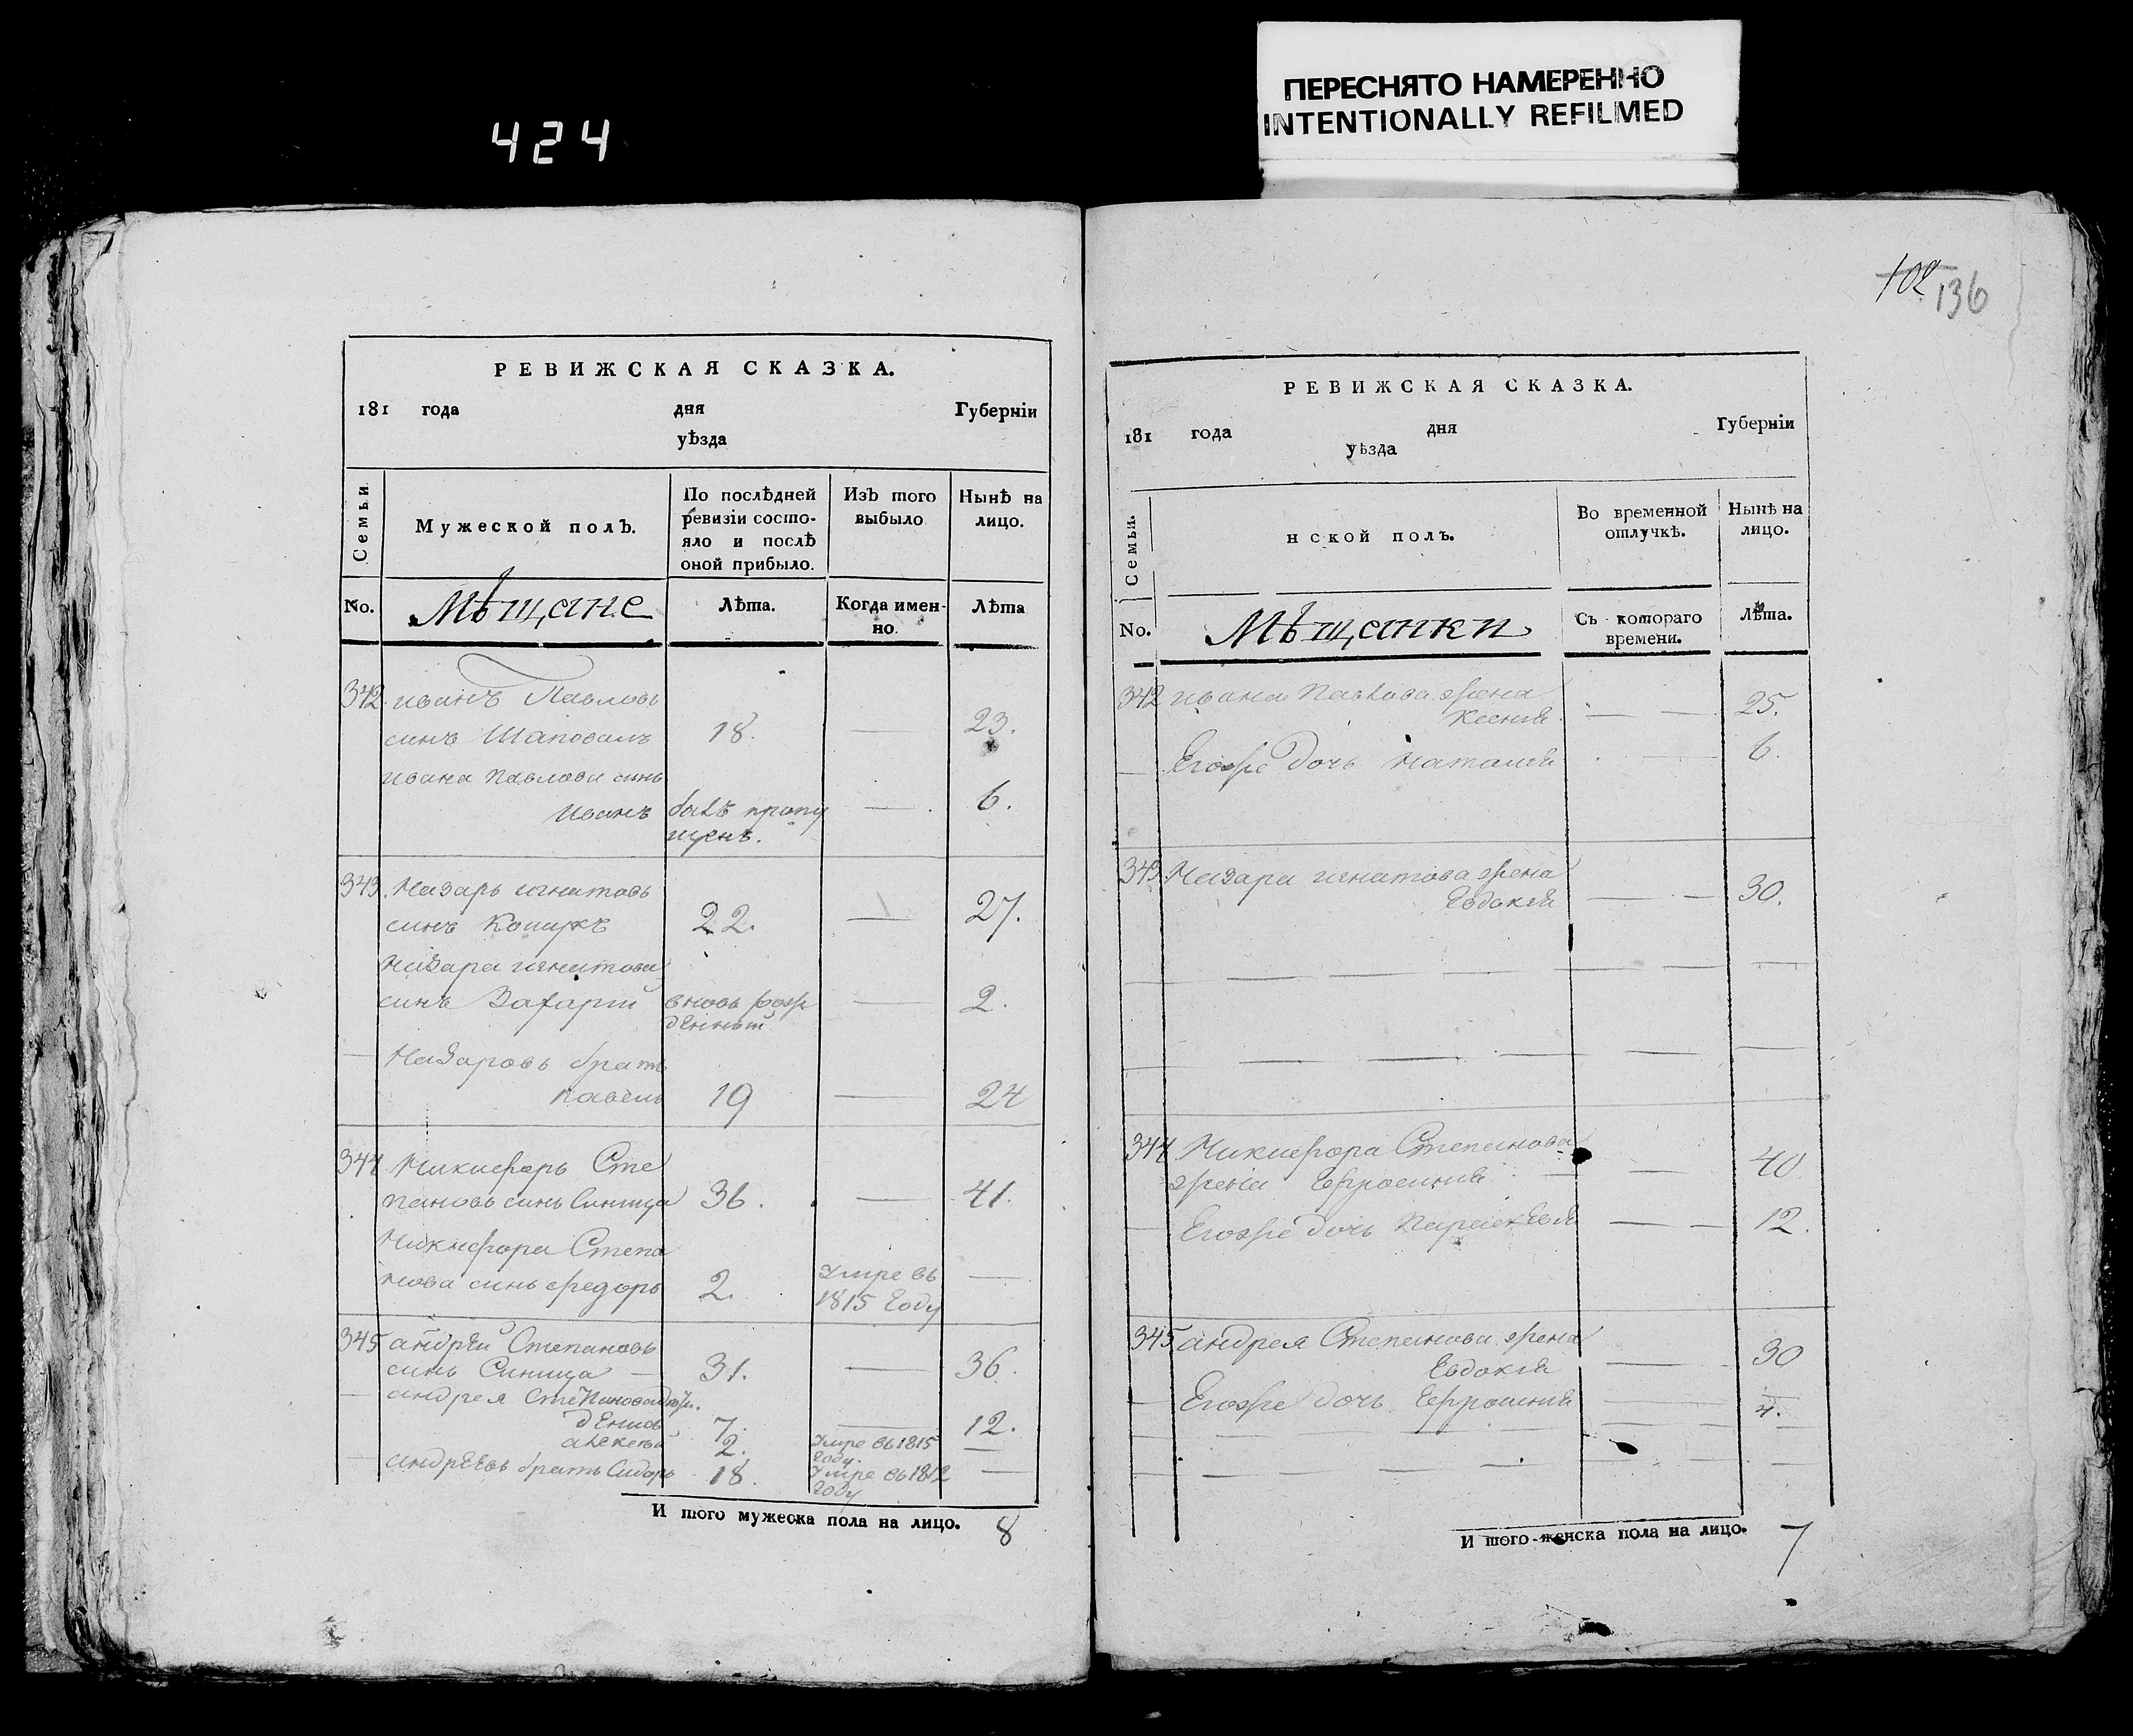 ПЕРЕСНЯТО НАМЕРЕННО
INTENTIONALLY REFILMED
424
102 136
РЕВИЖСКАЯ СКАЗКА.
181 года дня Губерніи
уѣзда
Семьи
Мужеской полъ.
По послѣдней
ревизіи состо-
яло и послѣ
оной прибыло.
Изъ того
выбыло
Нынѣ на
лицо.
No.
Мѣщане
Лѣта.
Когда имен-
но.
Лѣта
342 иванъ Павловъ
синъ Шаповалъ 18. — 23.
ивана павлова синъ
иванъ билъ пропу — 6.
щенъ.
343. Назаръ игнатовъ
синъ 22. — 27.
Назара игнатова
синъ Захарій вновь рож — 2.
денный
— Назаровъ братъ
павелъ 19 — 24
344 Никифоръ Сте
пановъ синъ Синица 36. — 41.
Никифора Степа
нова синъ федоръ 2. Умре въ —
1815 году
345 андрей Степановъ
синъ Синица — 31. — 36.
— андрея Степанова
денисъ 7. — 12.
алексей 2. Умре въ 1815 —
году.
— андреевъ братъ Сидоръ 18. Умре въ 1812 —
году
И того мужеска пола на лицо. 8
РЕВИЖСКАЯ СКАЗКА.
181 года дня Губерніи
уѣзда
Семьи.
нской полъ.
Во временной
отлучкѣ.
Нынѣ на
лицо.
No.
Мѣщанки
Съ котораго
времени.
Лѣта.
342 ивана Павлова жена
Ксенія — — 25.
— Егожъ дочь Наталія — 6.
343. Назара игнатова жена
Евдокія — — 30.
344 Никифора Степанова
жена Ефросинія — — 40
— Егожъ дочь Параскевія — — 12.
345 андрея Степанова жена
Евдокія — 30
— Егожъ дочь Ефросинія — 4.
И того женска пола на лицо. 7